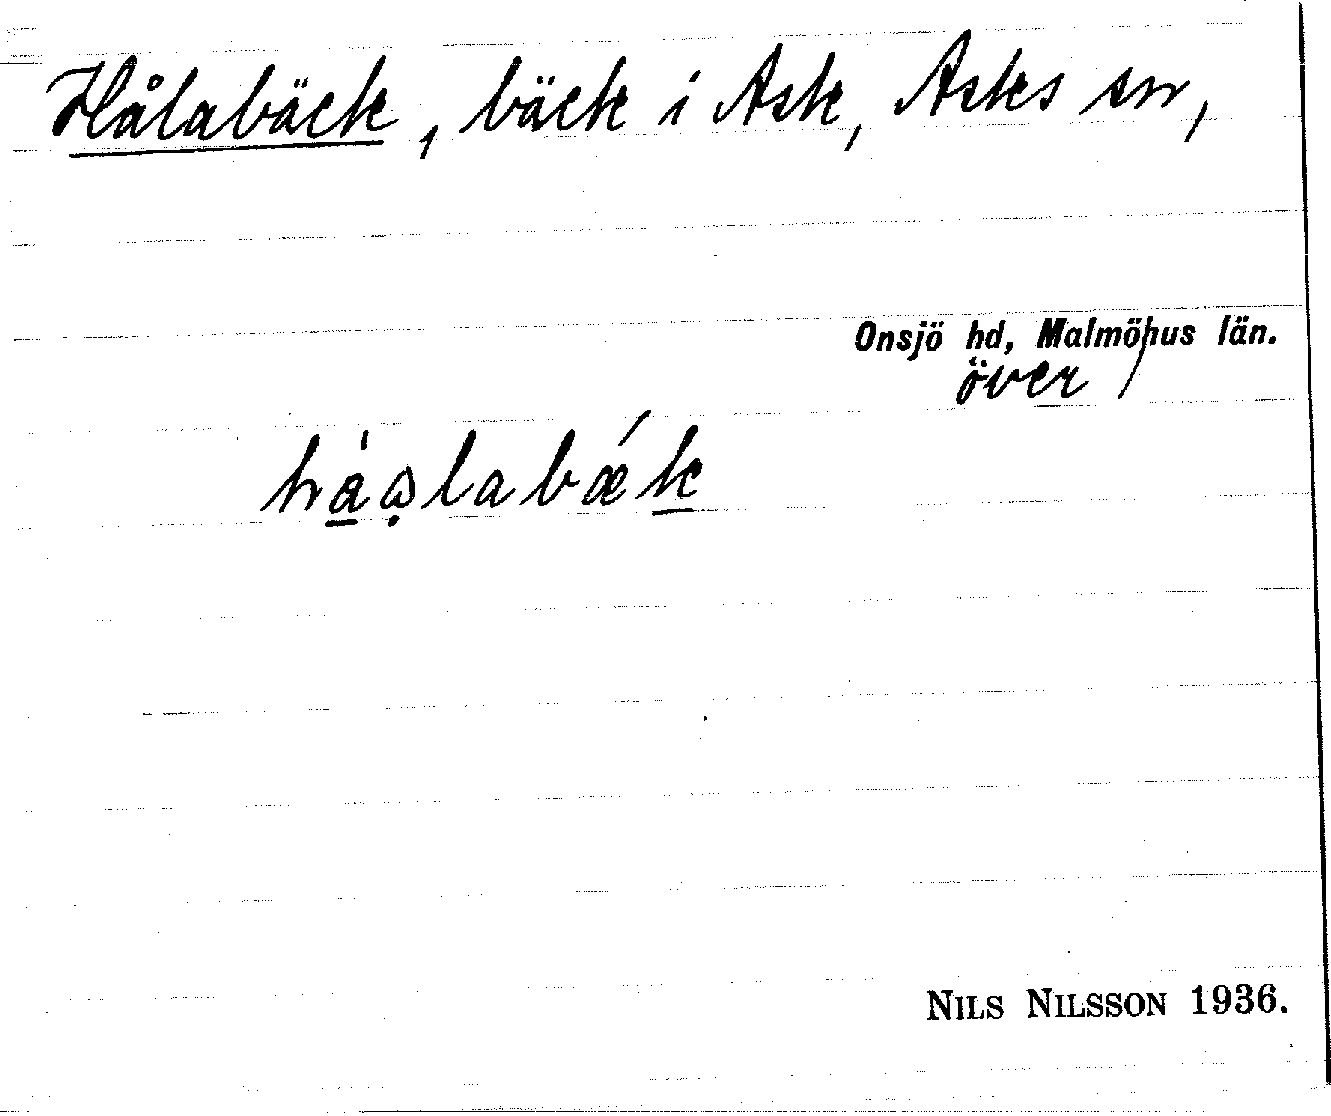 Hålabäck, bäck i Ask, Asks sn,
Onsjö hd, Malmöhus län.
över /
hàa̤labǽk
NILS NILSSON 1936.